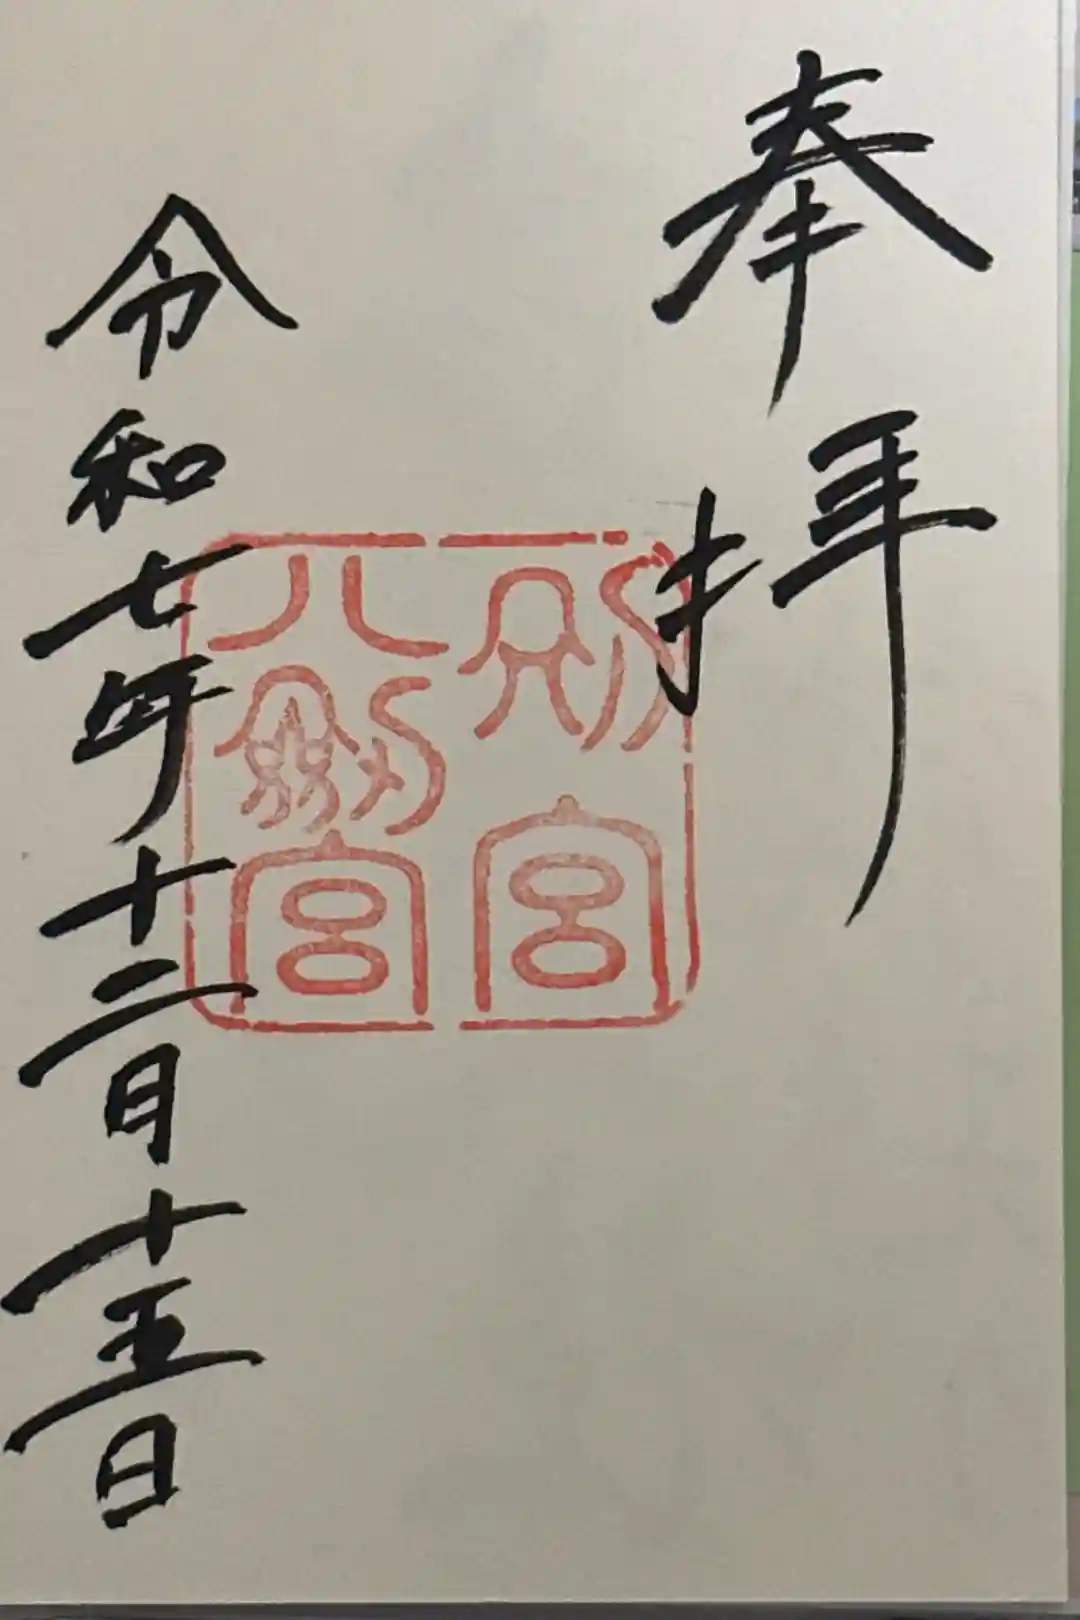 奉拝
別宮
八劔宮
令和七年十二月十五日